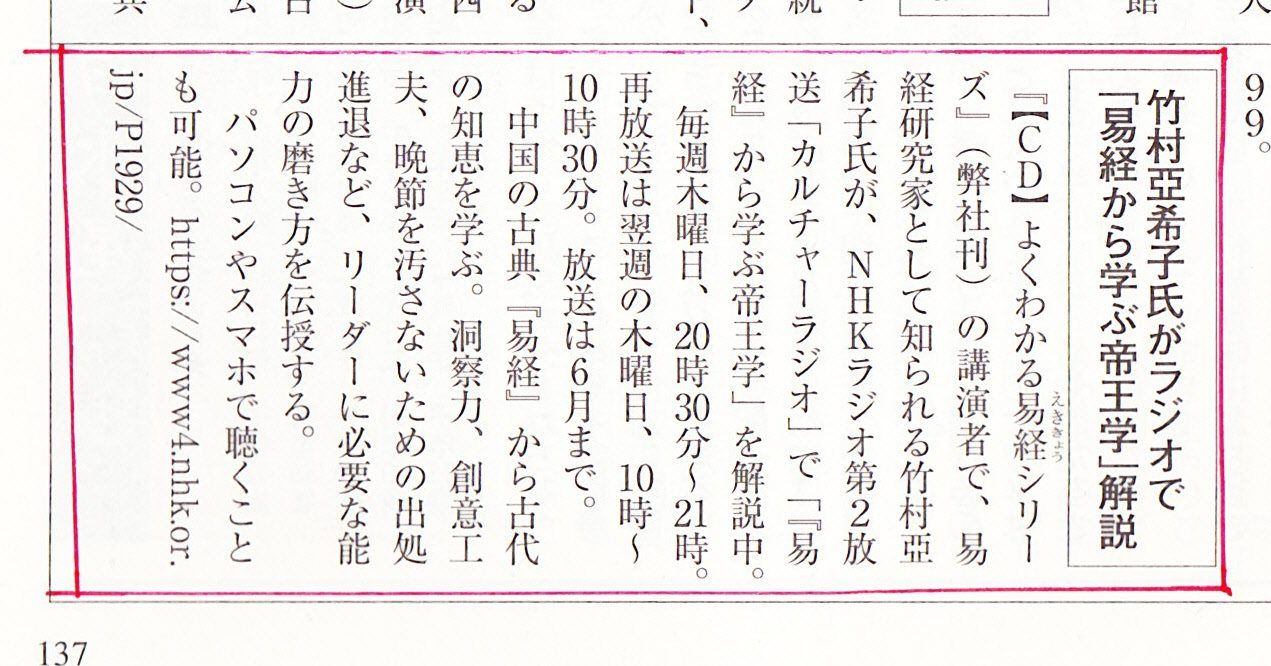 99。
竹村亞希子氏がラジオで
「易経から学ぶ帝王学」解説
『【CD】よくわかる易経シリー
えききょう
ズ』（弊社刊）の講演者で、易
経研究家として知られる竹村亞
希子氏が、NHKラジオ第2放
送「カルチャーラジオ」で「『易
経』から学ぶ帝王学」を解説中。
毎週木曜日、20時30分〜21時。
再放送は翌週の木曜日、10時〜
10時30分。放送は6月まで。
中国の古典『易経』から古代
の知恵を学ぶ。洞察力、創意工
夫、晩節を汚さないための出処
進退など、リーダーに必要な能
力の磨き方を伝授する。
パソコンやスマホで聴くこと
も可能。https://www4.nhk.or.
jp/P1929/
137